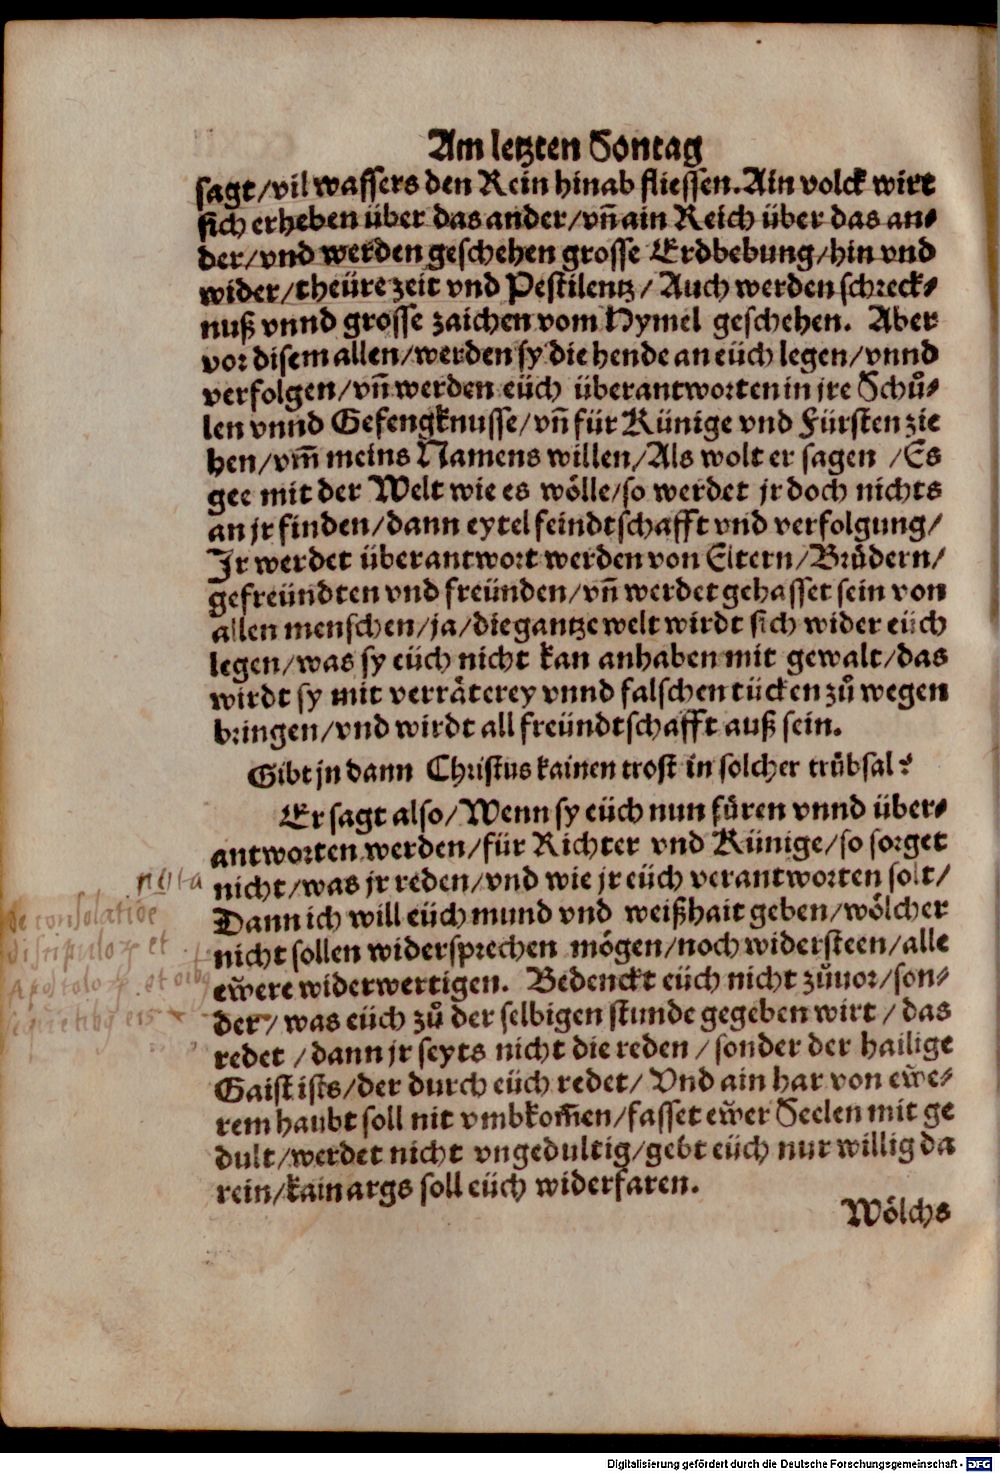 Am letzten Sontag
sagt/vil wassers den Rein hinab fliessen.Ain volck wirt
sich erheben über das ander/vn̄ ain Reich über das an-
der/vnd werden geschehen grosse Erdbebung/hin vnd
wider/theüre zeit vnd Pestilentz/ Auch werden schreck-
nuß vnnd grosse zaichen vom Hymel geschehen. Aber
vor disem allen/werden sy die hende an eüch legen/vnnd
verfolgen/vn̄ werden eüch überantworten in jre Schůl-
len vnnd Gefengknusse/vn̄ für Künige vnd Fürsten zie
hen/vm̄ meins Namens willen/Als wolt er sagen /Es
gee mit der Welt wie es wölle/so werdet jr doch nichts
an jr finden/dann eytel feindtschafft vnd verfolgung/
Jr werdet überantwort werden von Eltern/Brůdern/
gefreündten vnd freünden/vn̄ werdet gehasset sein von
allen menschen/ja/die gantze welt wirdt sich wider eüch
legen/was sy eüch nicht kan anhaben mit gewalt/das
wirdt sy mit verräterey vnnd falschen tücken zů wegen
bringen/vnd wirdt all freündtschafft auß sein.
Gibt jn dann Christus kainen trost in solcher trübsal?
Er sagt also/Wenn sy eüch nun fůren vnnd über-
antworten werden/für Richter vnd Künige/so sorget
nota
nicht/was jr reden/vnd wie jr eüch verantworten solt/
de consolatiōe
Dann ich will eüch mund vnd weißhait geben/wölcher
discipuloꝝ et
nicht sollen widersprechen mögen/noch widersteen/alle
Apostoloꝝ et oībꝰ
ew̎ere widerwertigen. Bedenckt eüch nicht zůuor/son-
sequētibꝰ eis
der/was eüch zů der selbigen stunde gegeben wirt /das
redet /dann jr seyts nicht die reden /sonder der hailige
Gaist ists/der durch eüch redet/ Vnd ain har von ew̎e-
rem haubt soll nit vmbkom̄en/fasset ew̎er Seelen mit ge
dult/werdet nicht vngedultig/gebt eüch nur willig da
rein/kain args soll eüch widerfaren.
Wölchs
Digitalisierung gefördert durch die Deutsche Forschungsgemeinschaft - DFG